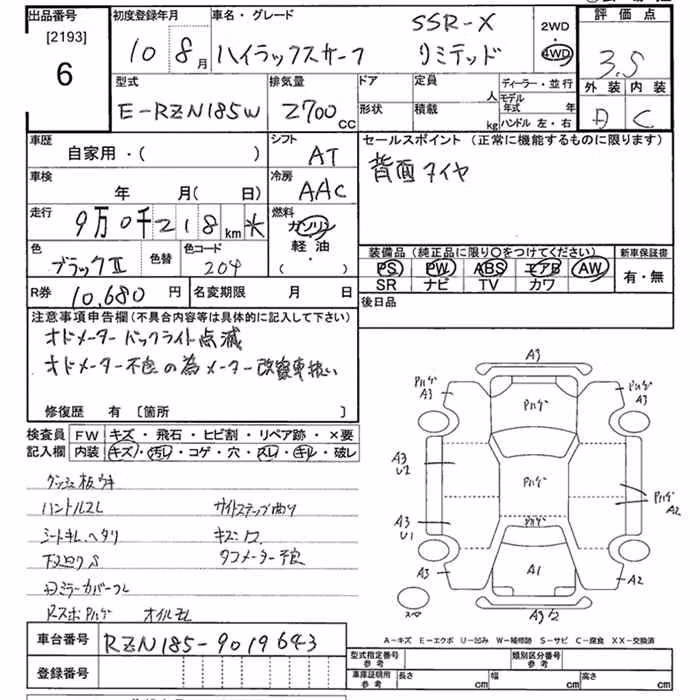 出品番号 初度登録年月 車名・グレード SSR-X 2WD 評価点
[2193] 10 8月 ハイラックスサーフ リミテッド ・ 3.5
6 4WD 外装 内装
型式 排気量 ドア 定員 人 ディーラー・並行
E-RZN185W 2700CC 形状 積載 kg モデル年式 年 C
ハンドル 左・右
車歴 シフト セールスポイント(正常に機能するものに限ります)
自家用・( ) AT 背面タイヤ
車検 冷房
年 月(日) AAC
走行 燃料
9万0千218km ※ ガソリン
色 色替 色コード 軽油 装備品(純正品に限り○をつけてください) 新車保証書
ブラックII 204 ( ・ ) PS PW ABS エアB AW 有・無
SR ナビ TV カワ
R券 10,680円 名変期限 月 日 後日品
注意事項申告欄(不具合内容等は具体的に記入して下さい)
オドメーターバックライト点滅
オドメーター不良の為メーター改ざん車扱い
修復歴 有 [箇所 ]
検査員 FW キズ・飛石・ヒビ割・リペア跡・×要
記入欄 内装 キズ・汚レ・コゲ・穴・スレ・キレ・破レ
ダッシュ板ウキ
ハンドルスレ サイドステップ曲り
シートキレ、ヘタリ キズ
タコメーター不良
ミラーカバー
オイルモレ
A3
Pハゲ A3
Pハゲ
Pハゲ A3
A3 U2
Pハゲ
Pハゲ A2
A3 U1
Pハゲ
A3
A1
A2
スペ
A3
A-キズ E-エクボ U-凹み W-補修跡 S-サビ C-腐食 XX-交換済
車台番号 RZN185-9019643
登録番号
型式指定番号 参考 類別区分番号 参考
車庫証明用 参考 長さ cm 幅 cm 高さ cm